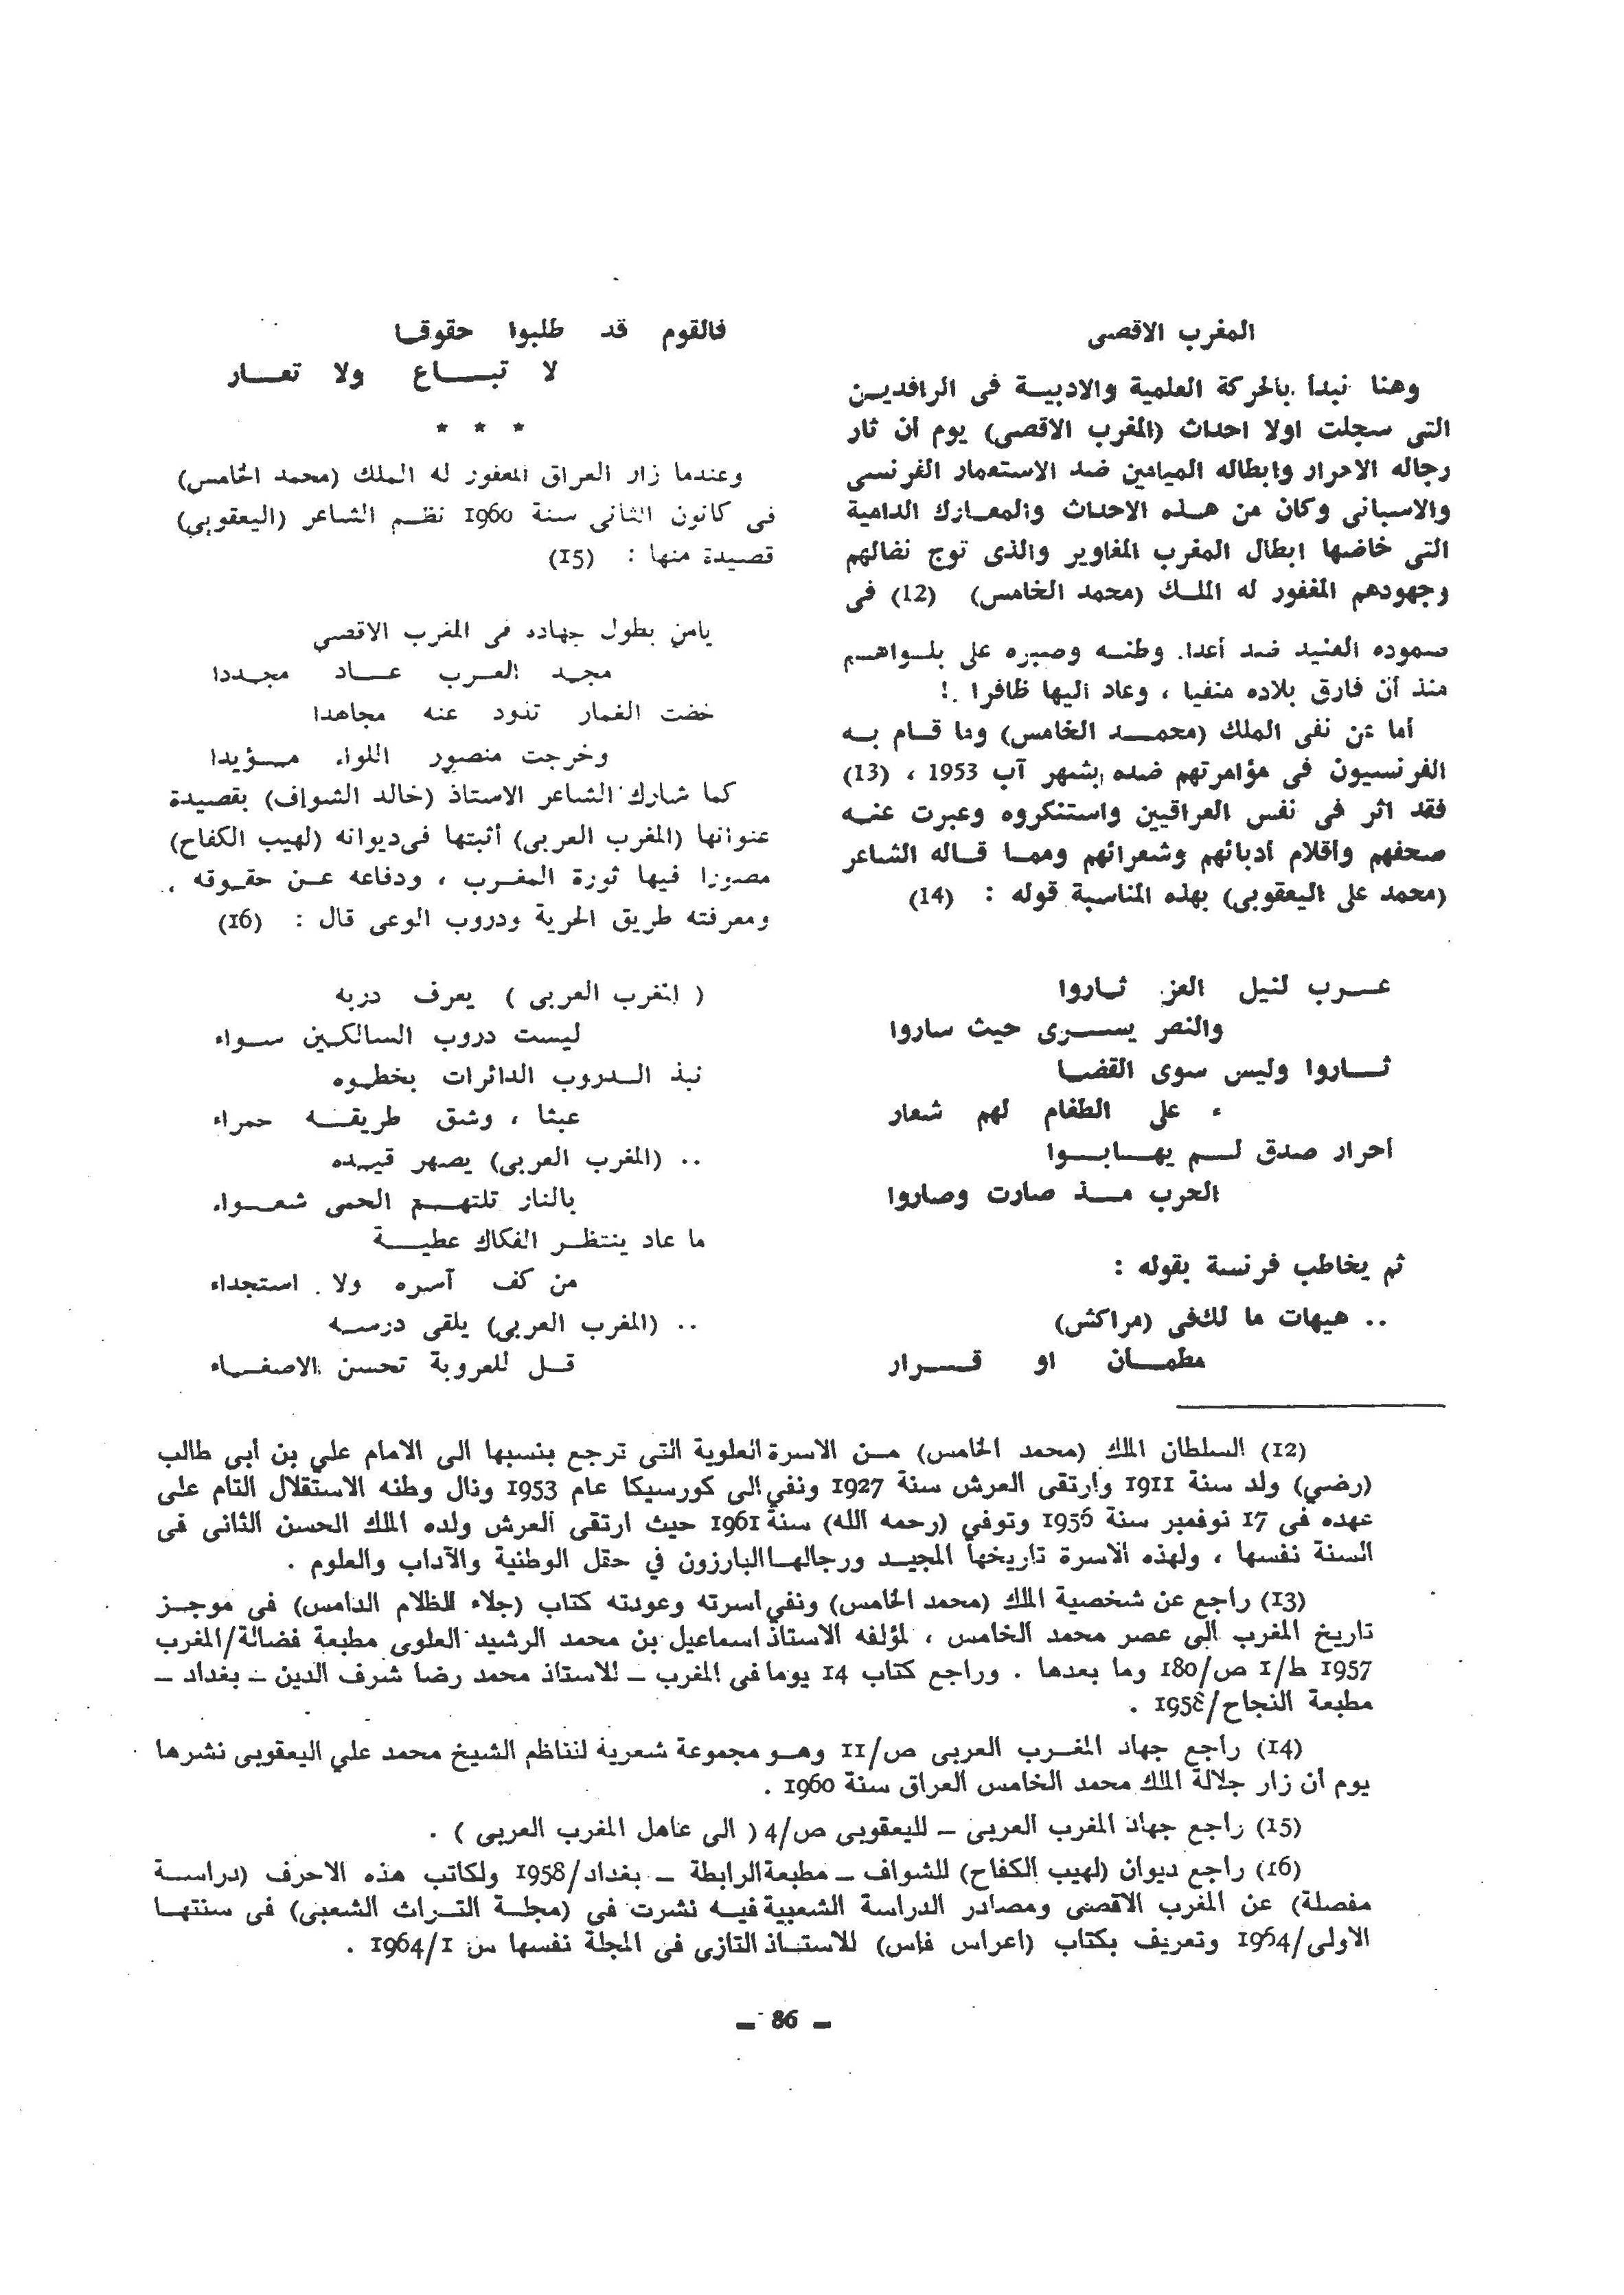 المغرب الاقصى
وهنا نبدأ بالحركة العلمية والادبيــة فى الرافديـن
التى سجلت اولا احداث (المغرب الاقصى) يوم أن ثار
رجاله الاحرار وابطاله الميامين ضد الاستعمار الفرنسى
والاسبانى وكان من هـذه الاحداث والمعـارك الدامية
التى خاضها ابطال المغرب المغاوير والذى توج نضالهم
وجهودهم المغفور له الملـك (محمد الخامس) (12) فى
صموده العنيد ضد أعداء وطنـه وصبره على بلـواهـم
منذ أن فارق بلاده منفيا ، وعاد اليها ظافرا .!
أما عن نفى الملك (محمـد الخامس) وما قـام بـه
الفرنسيون فى مؤامرتهم ضده بشهر آب 1953 ، (13)
فقد اثر فى نفس العراقيين واستنكروه وعبرت عنـه
صحفهم وأقلام أدبائهم وشعرائهم وممـا قـاله الشاعر
(محمد على اليعقوبى) بهذه المناسبة قوله : (14)
عـرب لنيل العز ثـاروا
والنصر يسـرى حيث ساروا
ثـاروا وليس سوى القضـا
ء على الطغام لهم شعار
احرار صدق لـم يهـابـوا
الحرب مـذ صارت وصاروا
ثم يخاطب فرنسة بقوله :
.. هيهات ما لك فى (مراكش)
مطمـان او قـرار
فالقوم قد طلبوا حقوقـا
لا تبـاع ولا تعـار
* * *
وعندما زار العراق المغفور له الملك (محمد الخامس)
فى كانون الثانى سنة 1960 نظـم الشاعر (اليعقوبي)
قصيدة منها : (15)
يامن بطول جهاده فى المغرب الاقصى
مجـد العـرب عـاد مجـددا
خضت الغمار تذود عنه مجاهدا
وخرجت منصور اللواء مـؤيدا
كما شارك الشاعر الاستاذ (خالد الشواف) بقصيدة
عنوانها (المغرب العربى) أثبتها فى ديوانه (لهيب الكفاح)
مصورا فيها ثورة المغـرب ، ودفاعه عـن حقـوقه ،
ومعرفته طريق الحرية ودروب الوعى قال : (16)
( المغرب العربى ) يعرف دربه
ليست دروب السالكـين سـواء
نبذ الـدروب الدائرات بخطـوه
عبثا ، وشق طريقـه حمراء
.. (المغرب العربى) يصهر قيـده
بالنار تلتهـم الحمى شعـواء
ما عاد ينتظـر الفكاك عطيـة
من كف آسره ولا استجداء
.. (المغرب العربى) يلقى درسـه
قـل للعروبة تحسن الاصغـاء
(12) السلطان الملك (محمد الخامس) مـن الاسرة العلوية التى ترجع بنسبها الى الامام علي بن أبى طالب
(رضي) ولد سنة 1911 وارتقى العرش سنة 1927 ونفي الى كورسيكا عام 1953 ونال وطنه الاستقلال التام على
عهده فى 17 نوفمبر سنة 1956 وتوفي (رحمه الله) سنة 1961 حيث ارتقى العرش ولده الملك الحسن الثانى فى
السنة نفسها ، ولهذه الاسرة تاريخها المجيـد ورجالهـا البارزون في حقل الوطنية والآداب والعلوم .
(13) راجع عن شخصية الملك (محمد الخامس) ونفي أسرته وعودته كتاب (جلاء الظلام الدامس) فى موجـز
تاريخ المغرب الى عصر محمد الخامس ، لمؤلفه الاستاذ اسماعيل بن محمد الرشيد العلوى مطبعة فضالة/المغرب
1957 ط/1 ص/180 وما بعدها . وراجع كتاب 14 يوما فى المغرب – للاستاذ محمد رضا شرف الدين – بغداد –
مطبعة النجاح/1958 .
(14) راجع جهاد المغـرب العربى ص/11 وهـو مجموعة شعرية للناظم الشيخ محمد علي اليعقوبى نشرها
يوم أن زار جلالة الملك محمد الخامس العراق سنة 1960 .
(15) راجع جهاد المغرب العربى – لليعقوبى ص/4 ( الى عاهل المغرب العربى ) .
(16) راجع ديوان (لهيب الكفاح) للشواف – مطبعة الرابطة – بغداد/1958 ولكاتب هذه الاحرف (دراسـة
مفصلة) عن المغرب الاقصى ومصادر الدراسة الشعبية فيـه نشرت في (مجلـة التـراث الشعبى) فى سنتهـا
الاولى/1964 وتعريف بكتاب (اعراس فاس) للاستـاذ التازى فى المجلة نفسها س 1964/1 .
– 86 –